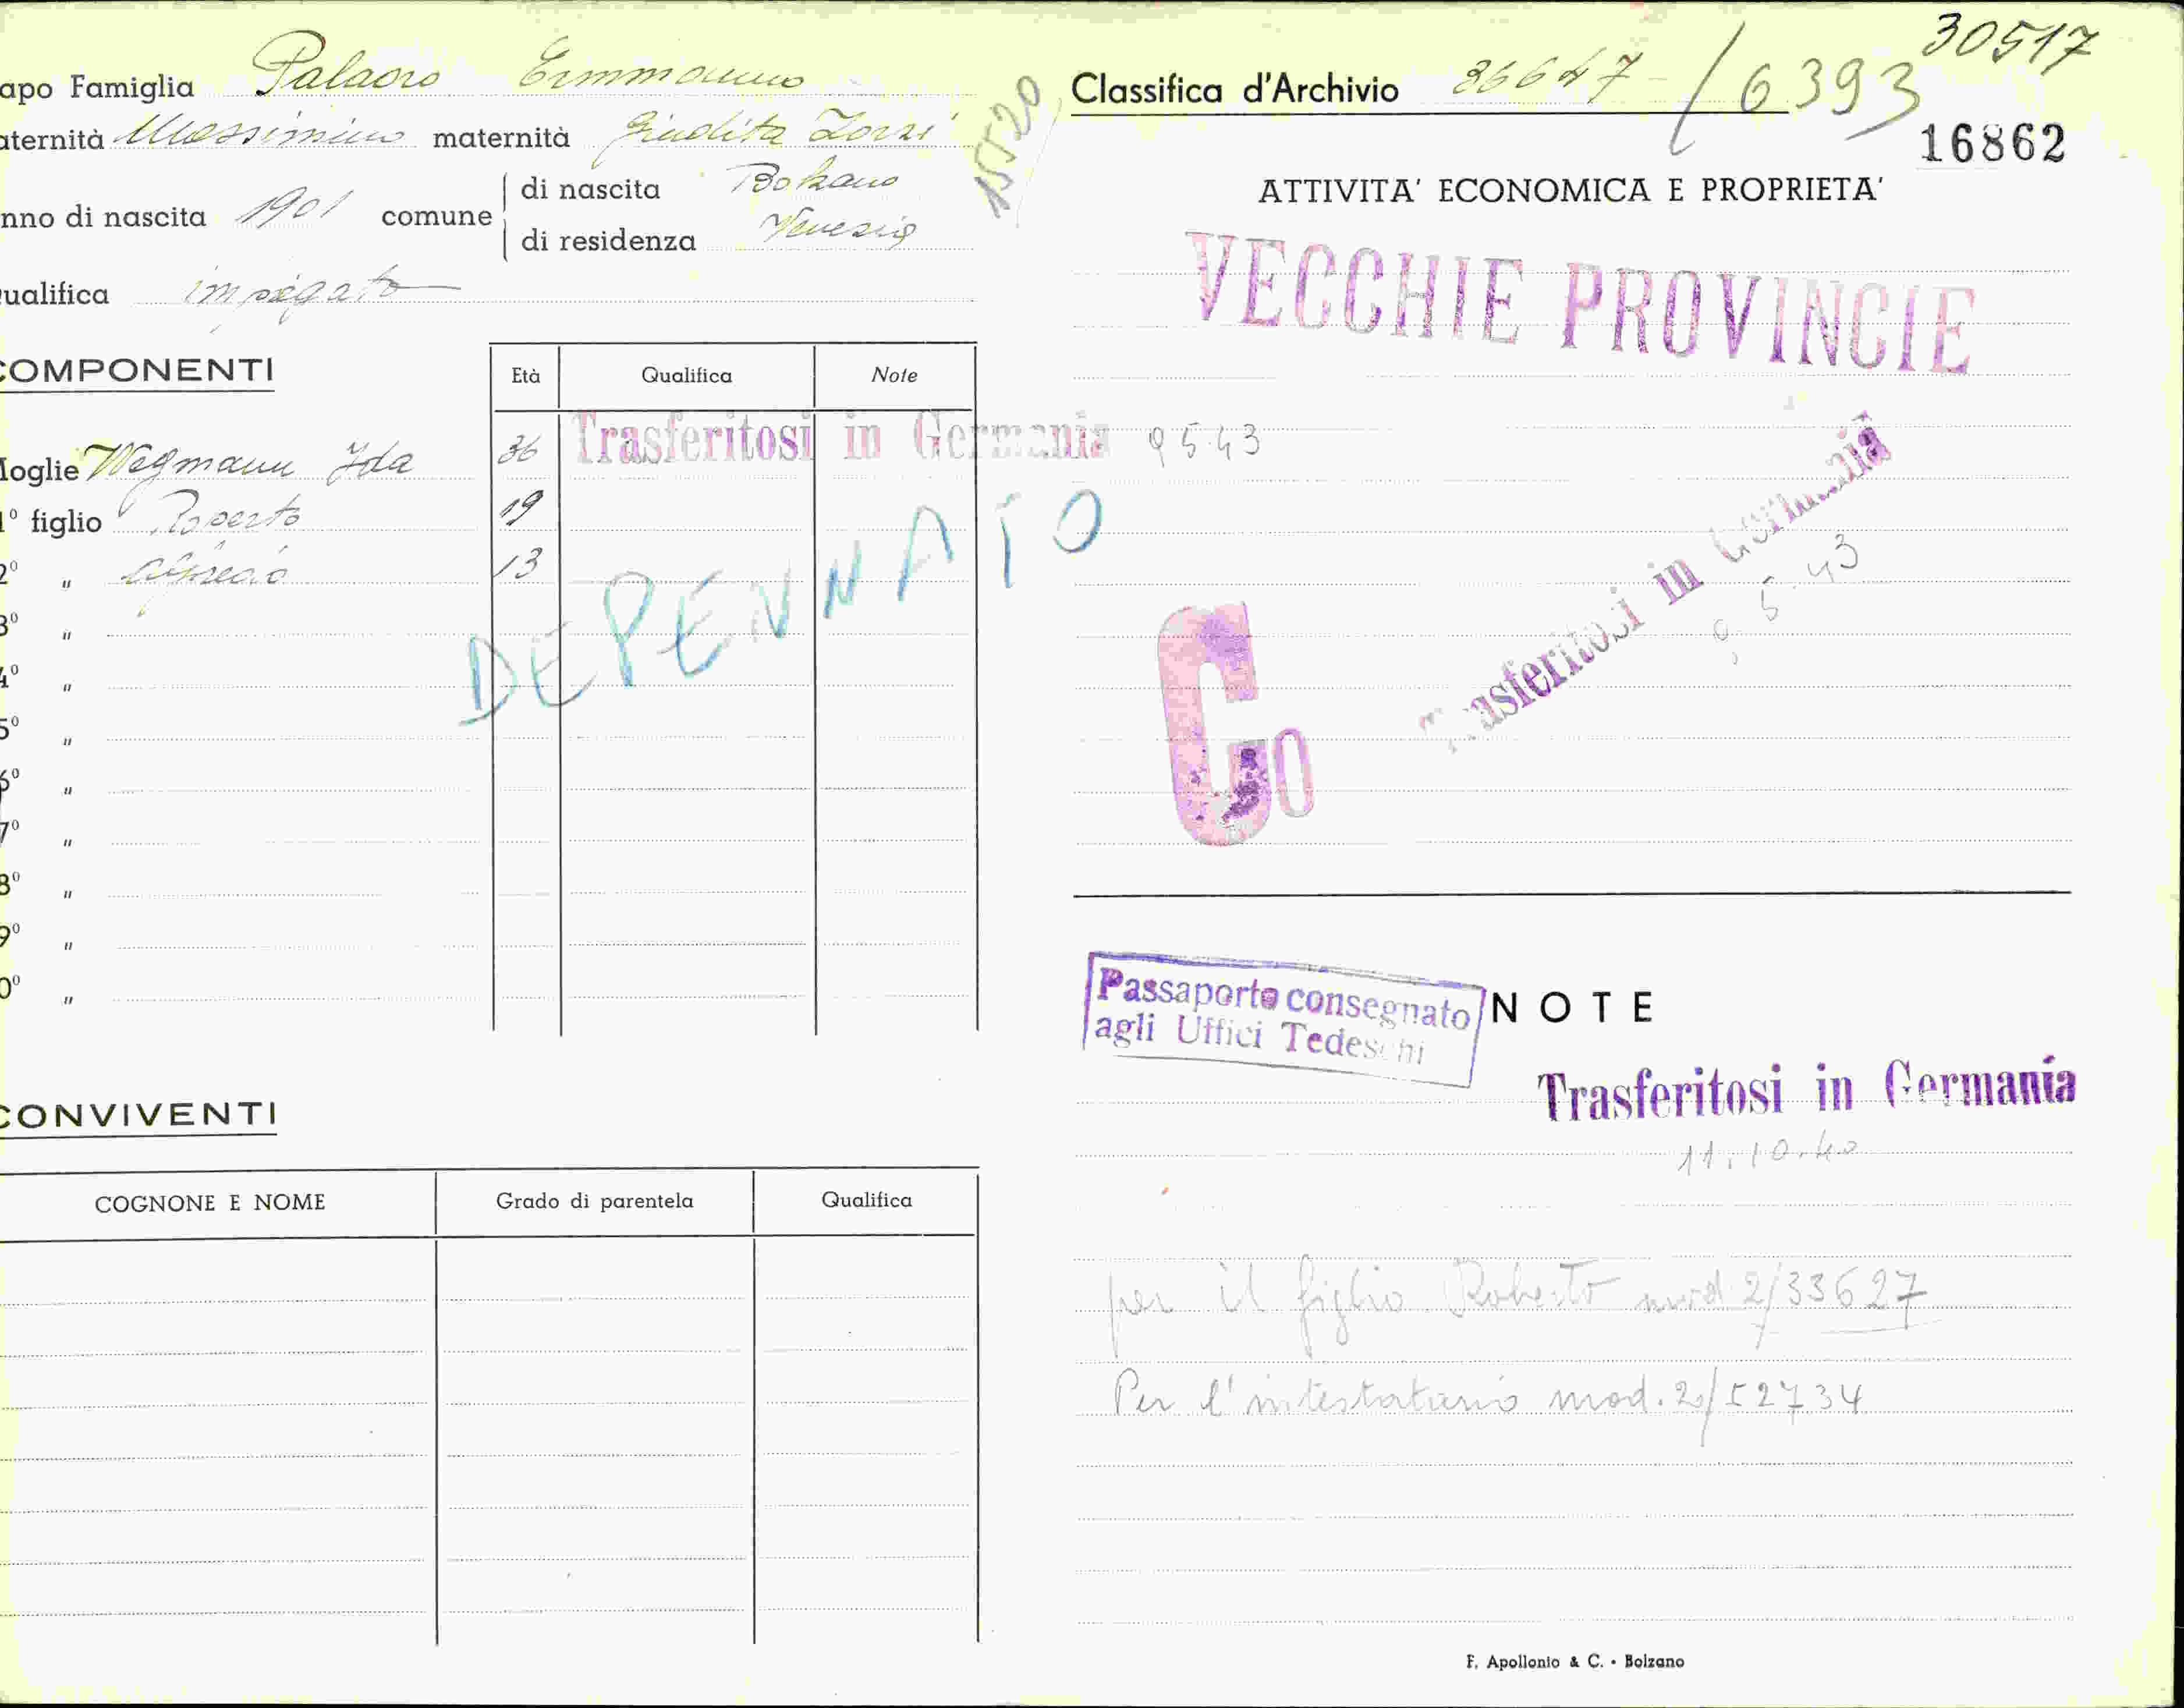 apo Famiglia Palaoro Ermmanno
aternità Massimino maternità Giuditta Zorzi
nno di nascita 1901 comune di nascita Bolzano
di residenza Venezia
ualifica impiegato
COMPONENTI
Età Qualifica Note
loglie Wegmann Ida 36 Trasferitosi in Germania 9 5 43
1° figlio Roberto 19
2° " 13
DEPENNATO
3° "
4° "
5° "
6° "
7° "
8° "
9° "
0° "
CONVIVENTI
COGNONE E NOME Grado di parentela Qualifica
15520
Classifica d'Archivio 36647 / 6393
30517
16862
ATTIVITA' ECONOMICA E PROPRIETA'
VECCHIE PROVINCIE
Trasferitosi in Germania
9. 5. 43
Co
Passaporto consegnato
agli Uffici Tedeschi
NOTE
Trasferitosi in Germania
11.10.40
per il figlio Roberto mod 2/33627
Per l'intestatario mod. 2/52734
F. Apollonio & C. - Bolzano